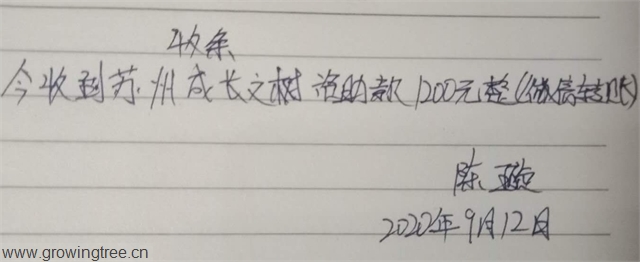 收条
今收到苏州成长之树资助款1200元整(微信转账)
陈
2020年9月12日
www.growingtree.cn